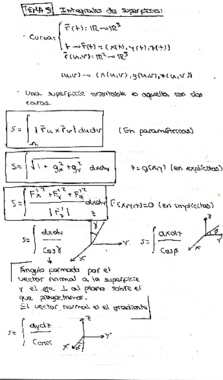 TEMA 5 Integrales de superficies:
· Curvas: r̄(t): ℝ → ℝ³
t → r̄(t) = (x(t), y(t), z(t))
r̄(u,v): ℝ² → ℝ³
(u,v) → (x(u,v), y(u,v), z(u,v))
· Una superficie orientable es aquella con dos
caras.
S = ∫∫ |r̄u x r̄v| du dv (En paramétricas)
S = ∫∫ √(1 + g'x² + g'y²) dx dy z = g(x,y) (en explícitas)
S = ∫∫ √(F'x² + F'y² + F'z²) / |F'z| dx dy F(x,y,z) = 0 (en implícitas)
S = ∫∫ dx dy / Cos γ Z Y X
S = ∫∫ dx dz / Cos β Z Y X
Ángulo formado por el
vector normal a la superficie
y el eje ⊥ al plano sobre el
que proyectamos.
El vector normal es el gradiente
S = ∫∫ dy dz / Cos α Z Y X